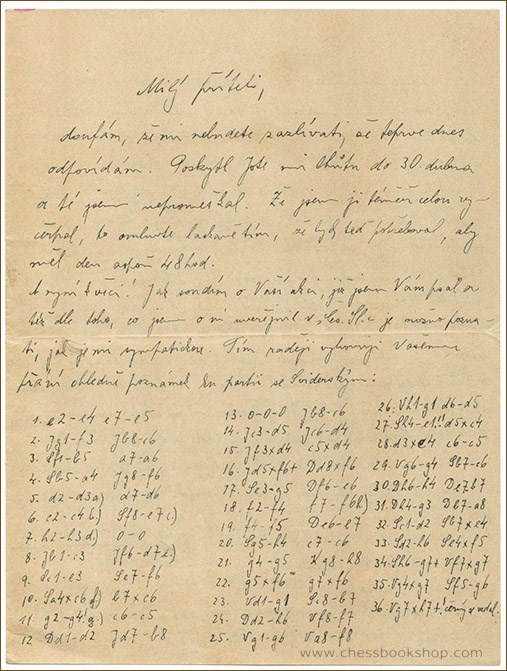 Milý příteli,
doufám, že mi nebudete zazlívati, že teprve dnes
odpovídám. Poskytl jste mi lhůtu do 30. dubna
a té jsem nepromeškal. Že jsem ji téměř celou vy-
čerpal, to omluvte laskavě tím, že bych teď potřeboval, aby
měl den aspoň 48 hod.
A nyní k věci! Jak soudím o Vaší akci, již jsem Vám psal a
též dle toho, co jsem o ní uveřejnil v Čes. Sl. je možno pozna-
ti, jak je mi sympatickou. Tím raději vyhovuji Vašemu
přání ohledně poznámek ku partii se Sviderským:
1. e2-e4 e7-e5
2. Jg1-f3 Jb8-c6
3. Sf1-b5 a7-a6
4. Sb5-a4 Jg8-f6
5. d2-d3 a) d7-d6
6. c2-c4 b) Sf8-e7 c)
7. h2-h3 d) 0-0
8. Jb1-c3 Jf6-d7
9. Sc1-e3 Se7-f6
10. Sa4xc6 b7xc6
11. g2-g4 c6-c5
12 Dd1-d2 Jd7-b8
13. 0-0-0 Jb8-c6
14. Jc3-d5 Jc6-d4
15. Jf3xd4 c5xd4
16. Jd5xf6+ Dd8xf6
17. Se3-g5 Df6-e6
18. f2-f4 f7-f6 h)
19. f4-f5 De6-e7
20. Sg5-h4 c7-c6
21. g4-g5 Kg8-h8
22. g5xf6 g7xf6
23. Vd1-g1 Sc8-b7
24. Dd2-h6 Vf8-f7
25. Vg1-g6 Va8-f8
26. Vh1-g1 d6-d5
27. Sh4-e1!! d5xc4
28. d3xc4 c6-c5
29. Vg6-g4 Sb7-c6
30. Dh6-h4 De7b7
31. Dh4-g3 Db7-a8
32. Se1-d2 Sb7xe4
33. Sd2-h6 Se4xf5
34. Sh6-g7+ Vf7xg7
35. Vg4xg7 Sf5-g6
36. Vg7xh7+! černý vzdal.
www.chessbookshop.com